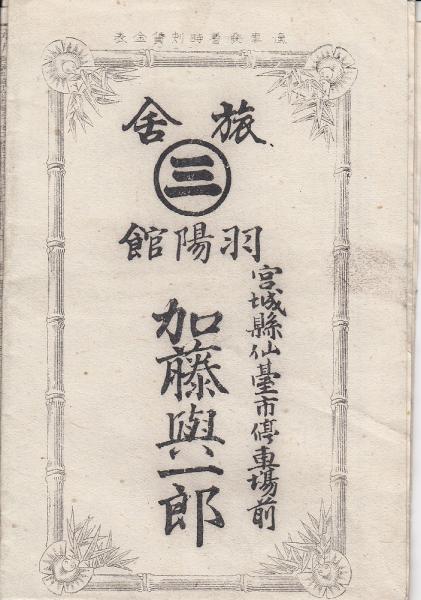 汽車発着時刻賃金表
旅舎
三
羽陽館
宮城縣仙臺市停車場前
加藤與一郎